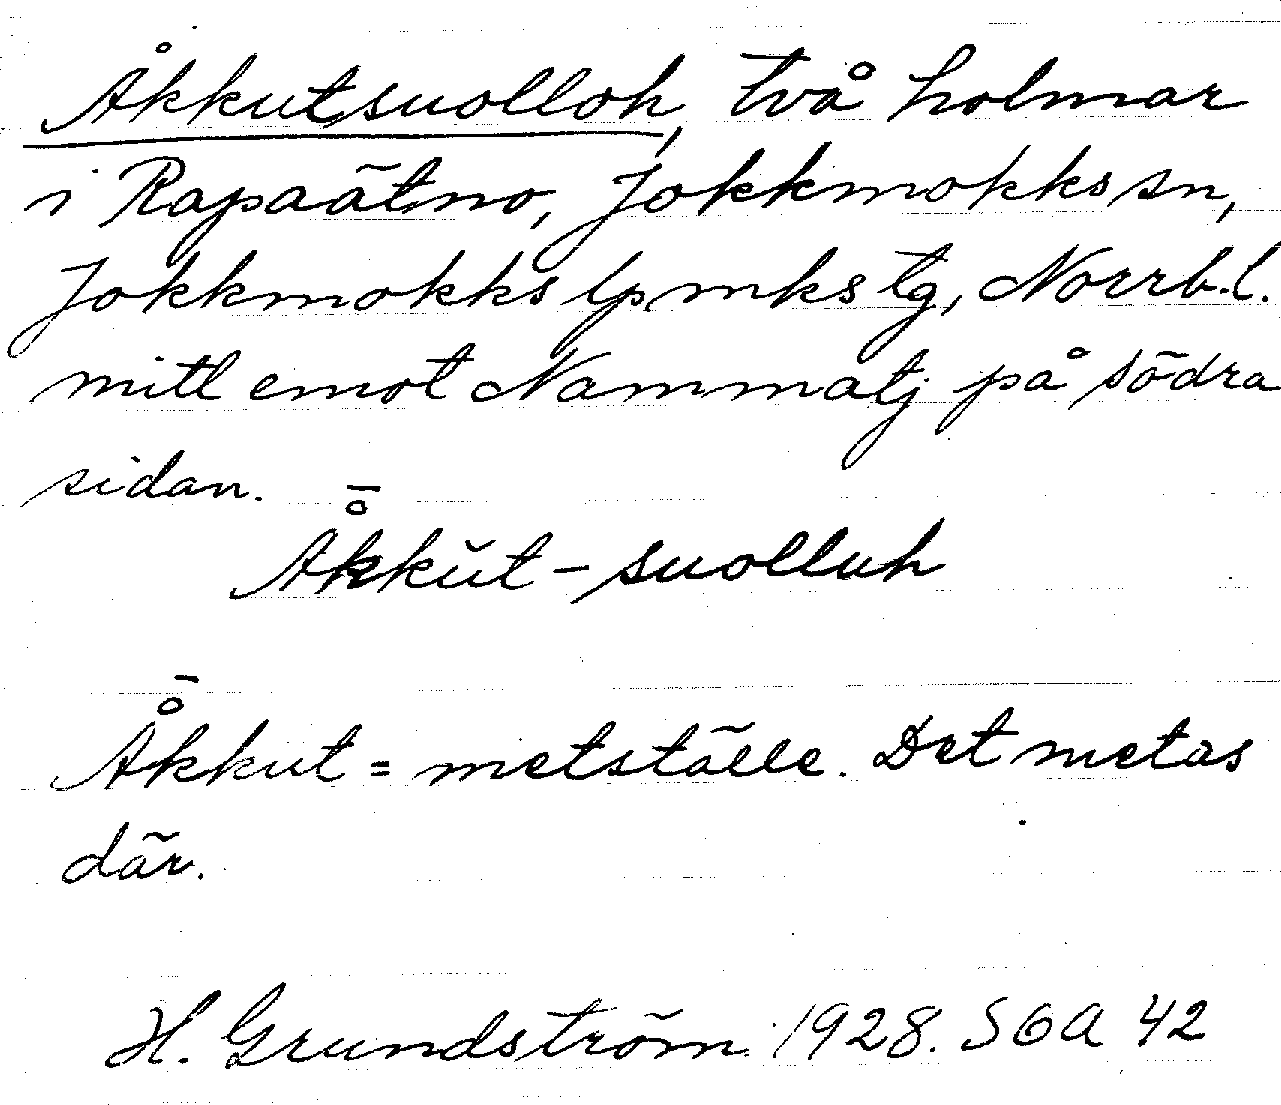 Åkkutsuolloh, två holmar
i Rapaätno, Jokkmokks sn,
Jokkmokks lpmks tg, Norrb.l.
mitt emot Nammatj på södra
sidan.
Å̄kkŭt-suolluh
Å̄kkut = metställe. Det metas
där.
H. Grundström 1928. SOA 42